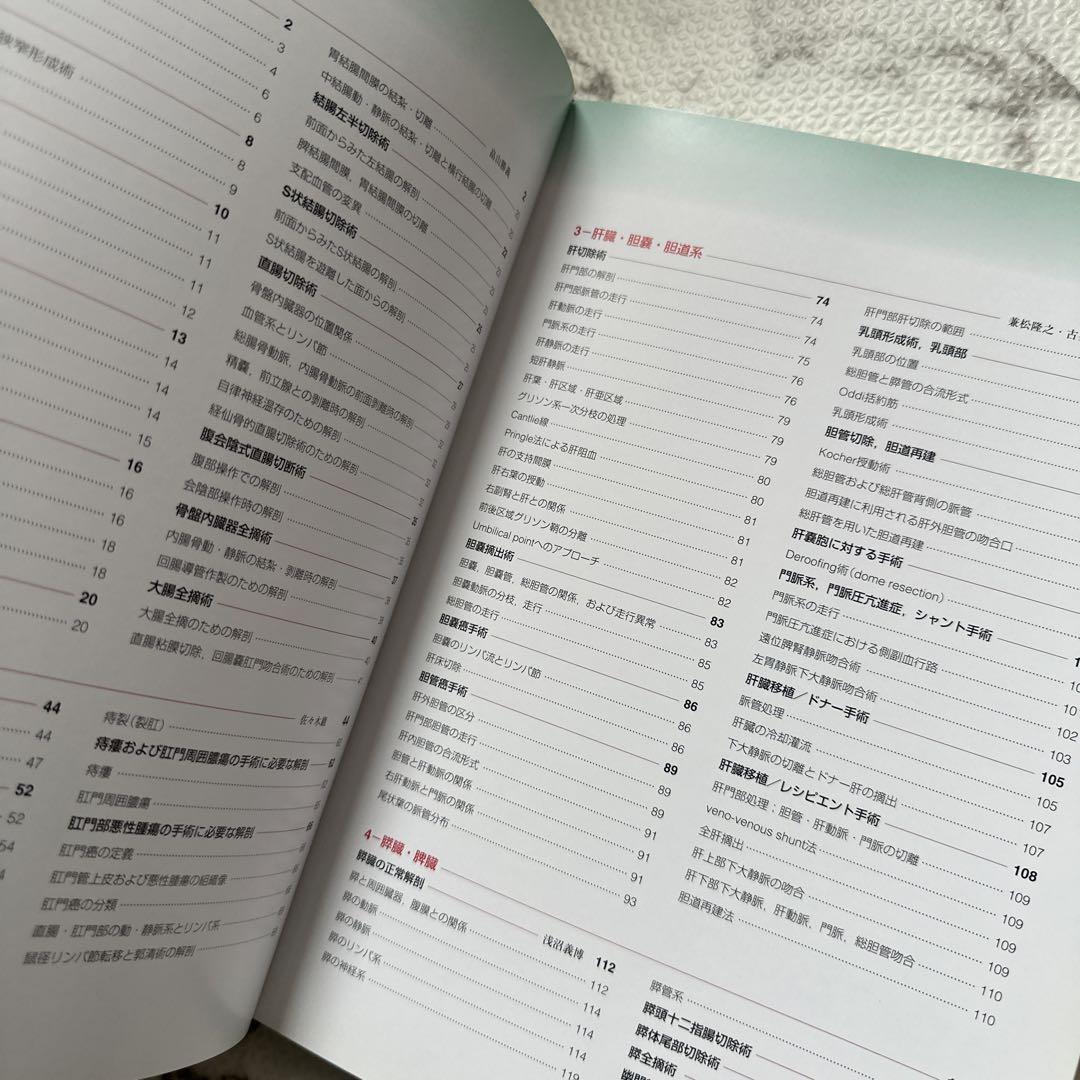 狭窄形成術
2
3
4
6
6
8
8
9
10
11
11
11
12
13
14
14
14
15
16
16
16
18
18
20
20
44
44
47
52
52
54
胃結腸間膜の結紮・切離
中結腸動・静脈の結紮・切離と横行結腸の切離
結腸左半切除術
前面からみた左結腸の解剖
脾結腸間膜，胃結腸間膜の切離
支配血管の変異
S状結腸切除術
前面からみたS状結腸の解剖
S状結腸を遊離した面からの解剖
直腸切除術
骨盤内臓器の位置関係
血管系とリンパ節
総腸骨動脈，内腸骨動脈の前面剥離時の解剖
精嚢，前立腺との剥離時の解剖
自律神経温存のための解剖
経仙骨的直腸切除術のための解剖
腹会陰式直腸切断術
腹部操作での解剖
会陰部操作時の解剖
骨盤内臓器全摘術
内腸骨動・静脈の結紮・剥離時の解剖
回腸導管作製のための解剖
大腸全摘術
大腸全摘のための解剖
直腸粘膜切除，回腸嚢肛門吻合術のための解剖
44
痔裂（裂肛）
痔瘻および肛門周囲膿瘍の手術に必要な解剖
痔瘻
肛門周囲膿瘍
肛門部悪性腫瘍の手術に必要な解剖
肛門癌の定義
肛門管上皮および悪性腫瘍の組織像
肛門癌の分類
直腸・肛門部の動・静脈系とリンパ系
鼠径リンパ節転移と郭清術の解剖
3－肝臓・胆嚢・胆道系
兼松隆之・古
肝切除術 74
肝門部の解剖 74
肝門部脈管の走行 74
肝動脈の走行 75
門脈系の走行 76
肝静脈の走行 76
短肝静脈 79
肝葉・肝区域・肝亜区域 79
グリソン系一次分枝の処理 79
Cantlie線 80
Pringle法による肝阻血 80
肝の支持間膜 81
肝右葉の授動 81
右副腎と肝との関係 81
前後区域グリソン鞘の分離 82
Umbilical pointへのアプローチ 82
胆嚢摘出術 83
胆嚢，胆嚢管，総胆管の関係，および走行異常 83
胆嚢動脈の分枝，走行 85
総胆管の走行 85
胆嚢癌手術 86
胆嚢のリンパ流とリンパ節 86
肝床切除 86
胆管癌手術 89
肝外胆管の区分 89
肝門部胆管の走行 89
肝内胆管の合流形式 91
胆管と肝動脈の関係 91
右肝動脈と門脈の関係 91
尾状葉の脈管分布 93
肝門部肝切除の範囲
乳頭形成術，乳頭部
乳頭部の位置
総胆管と膵管の合流形式
Oddi括約筋
乳頭形成術
胆管切除，胆道再建
Kocher授動術
総胆管および総肝管背側の脈管
胆道再建に利用される肝外胆管の吻合口
総肝管を用いた胆道再建
肝嚢胞に対する手術
Deroofing術（dome resection）
門脈系，門脈圧亢進症，シャント手術
門脈系の走行
門脈圧亢進症における側副血行路
遠位脾腎静脈吻合術 102
左胃静脈下大静脈吻合術 103
肝臓移植／ドナー手術 105
脈管処理 105
肝臓の冷却灌流 107
下大静脈の切離とドナー肝の摘出 107
肝臓移植／レシピエント手術 108
肝門部処理：胆管・肝動脈・門脈の切離 109
veno-venous shunt法 109
全肝摘出 109
肝上部下大静脈の吻合 109
肝下部下大静脈，肝動脈，門脈，総胆管吻合 110
胆道再建法 110
4－膵臓・脾臓
浅沼義博
膵臓の正常解剖 112
膵と周囲臓器，腹膜との関係 112
膵の動脈 114
膵の静脈 114
膵のリンパ系 114
膵の神経系 119
膵管系
膵頭十二指腸切除術
膵体尾部切除術
膵全摘術